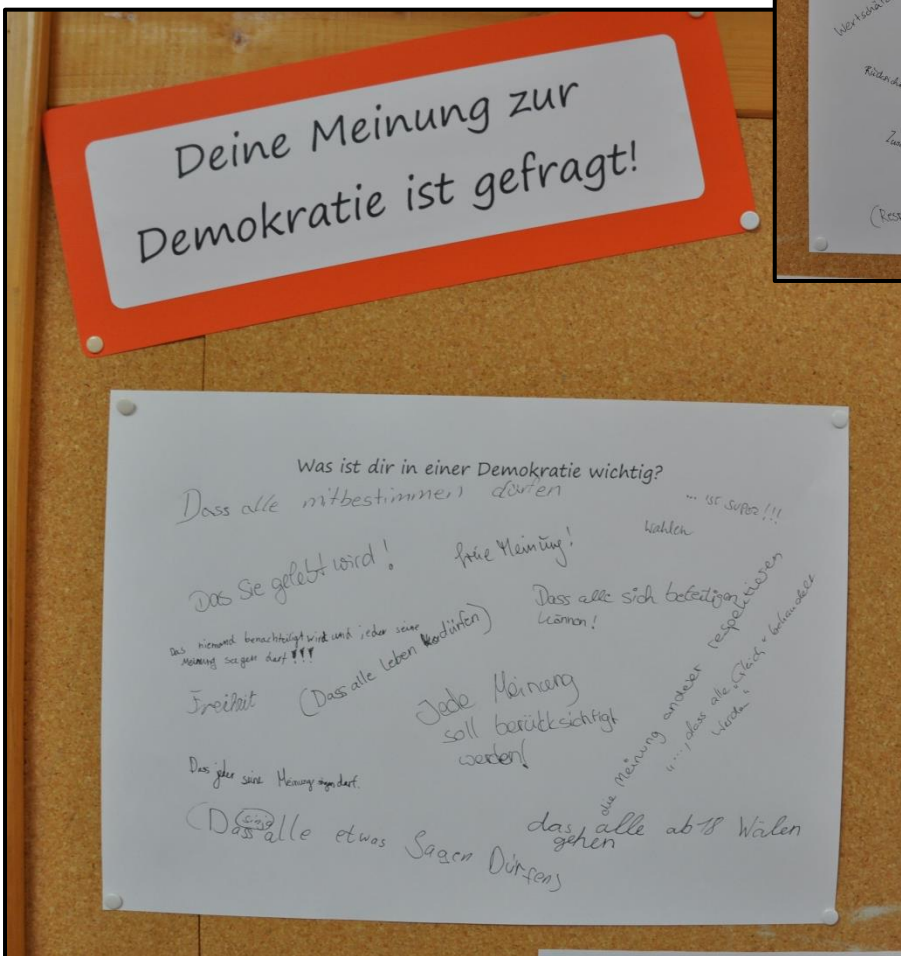 Deine Meinung zur
Demokratie ist gefragt!
Was ist dir in einer Demokratie wichtig?
Dass alle mitbestimmen dürfen
... ist super!!!
wahlen
Das Sie gelebt wird!
freie Meinung!
Dass alle sich beteiligen
können!
Das niemand benachteiligt wird und jeder seine
Meinung sagen darf!!!
Freiheit
(Dass alle Leben dürfen)
Jede Meinung
soll berücksichtigt
werden!
die Meinung anderer respektieren
"..., dass alle "Gleich" behandelt
werden"
Dass jeder seine Meinung sagen darf.
(Dass alle etwas Sagen Dürfen)
das alle ab 18 Wälen
gehen